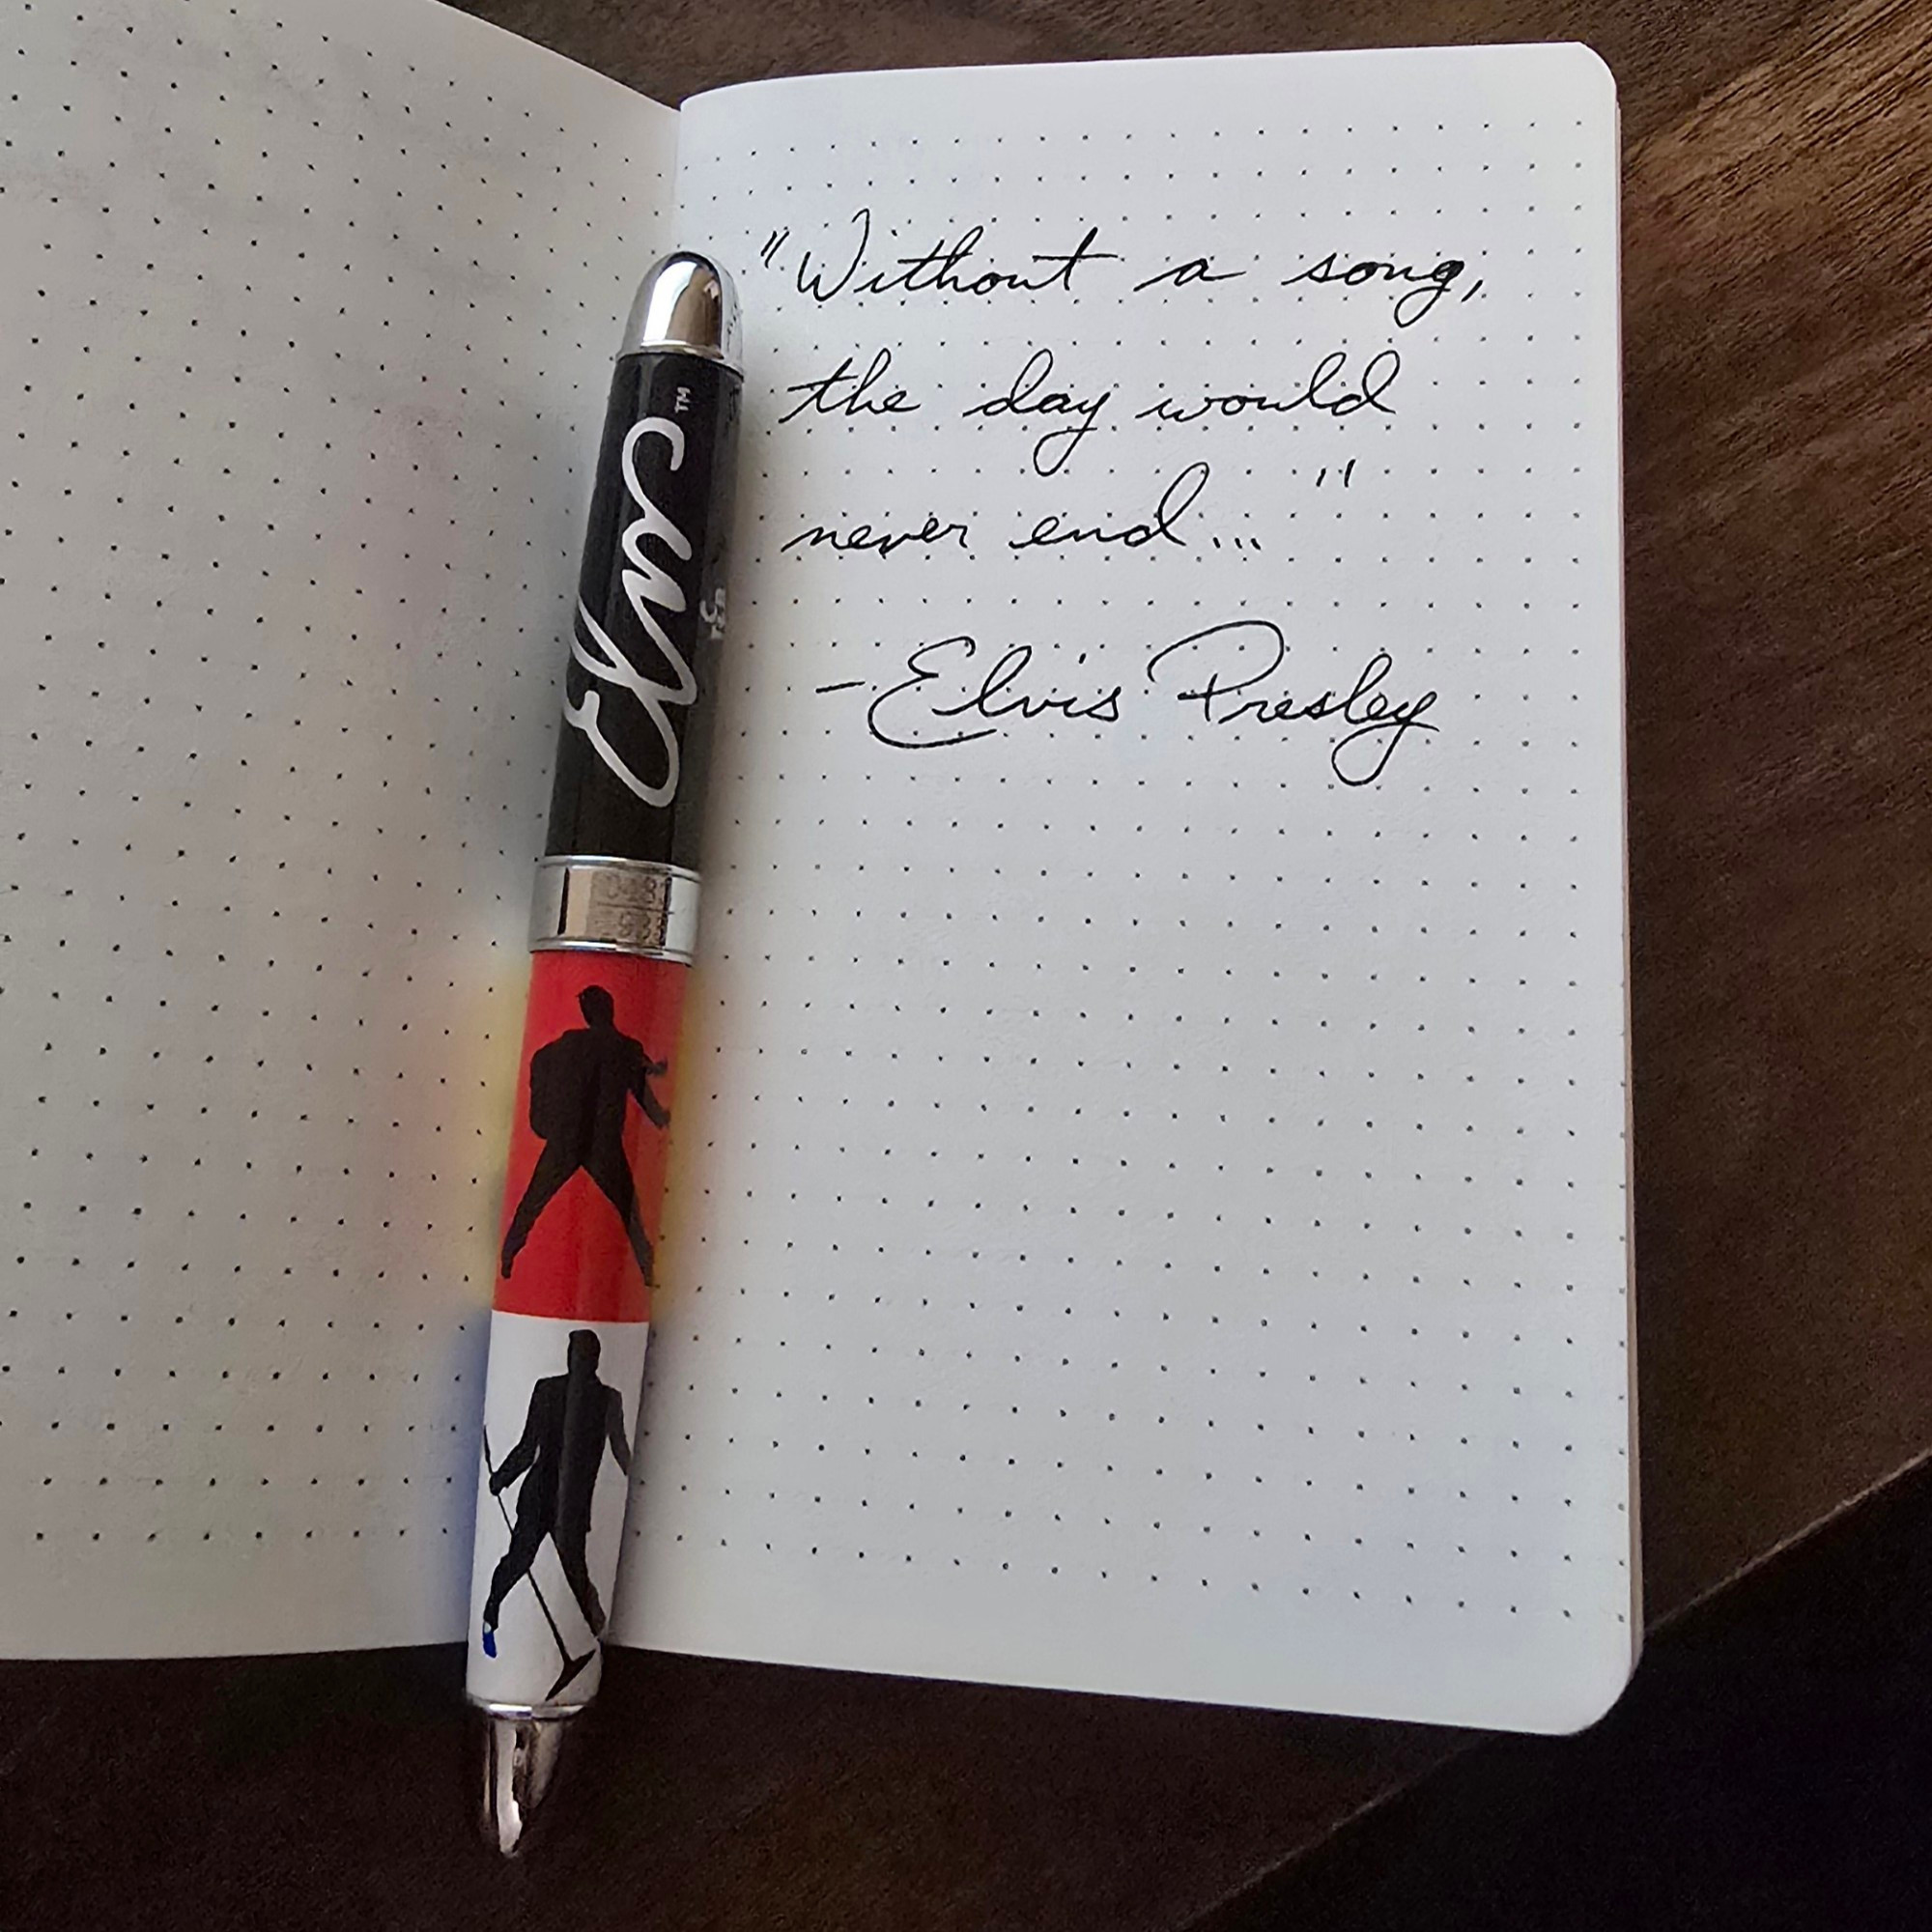 "Without a song,
the day would
never end..."
-Elvis Presley
Elvis™